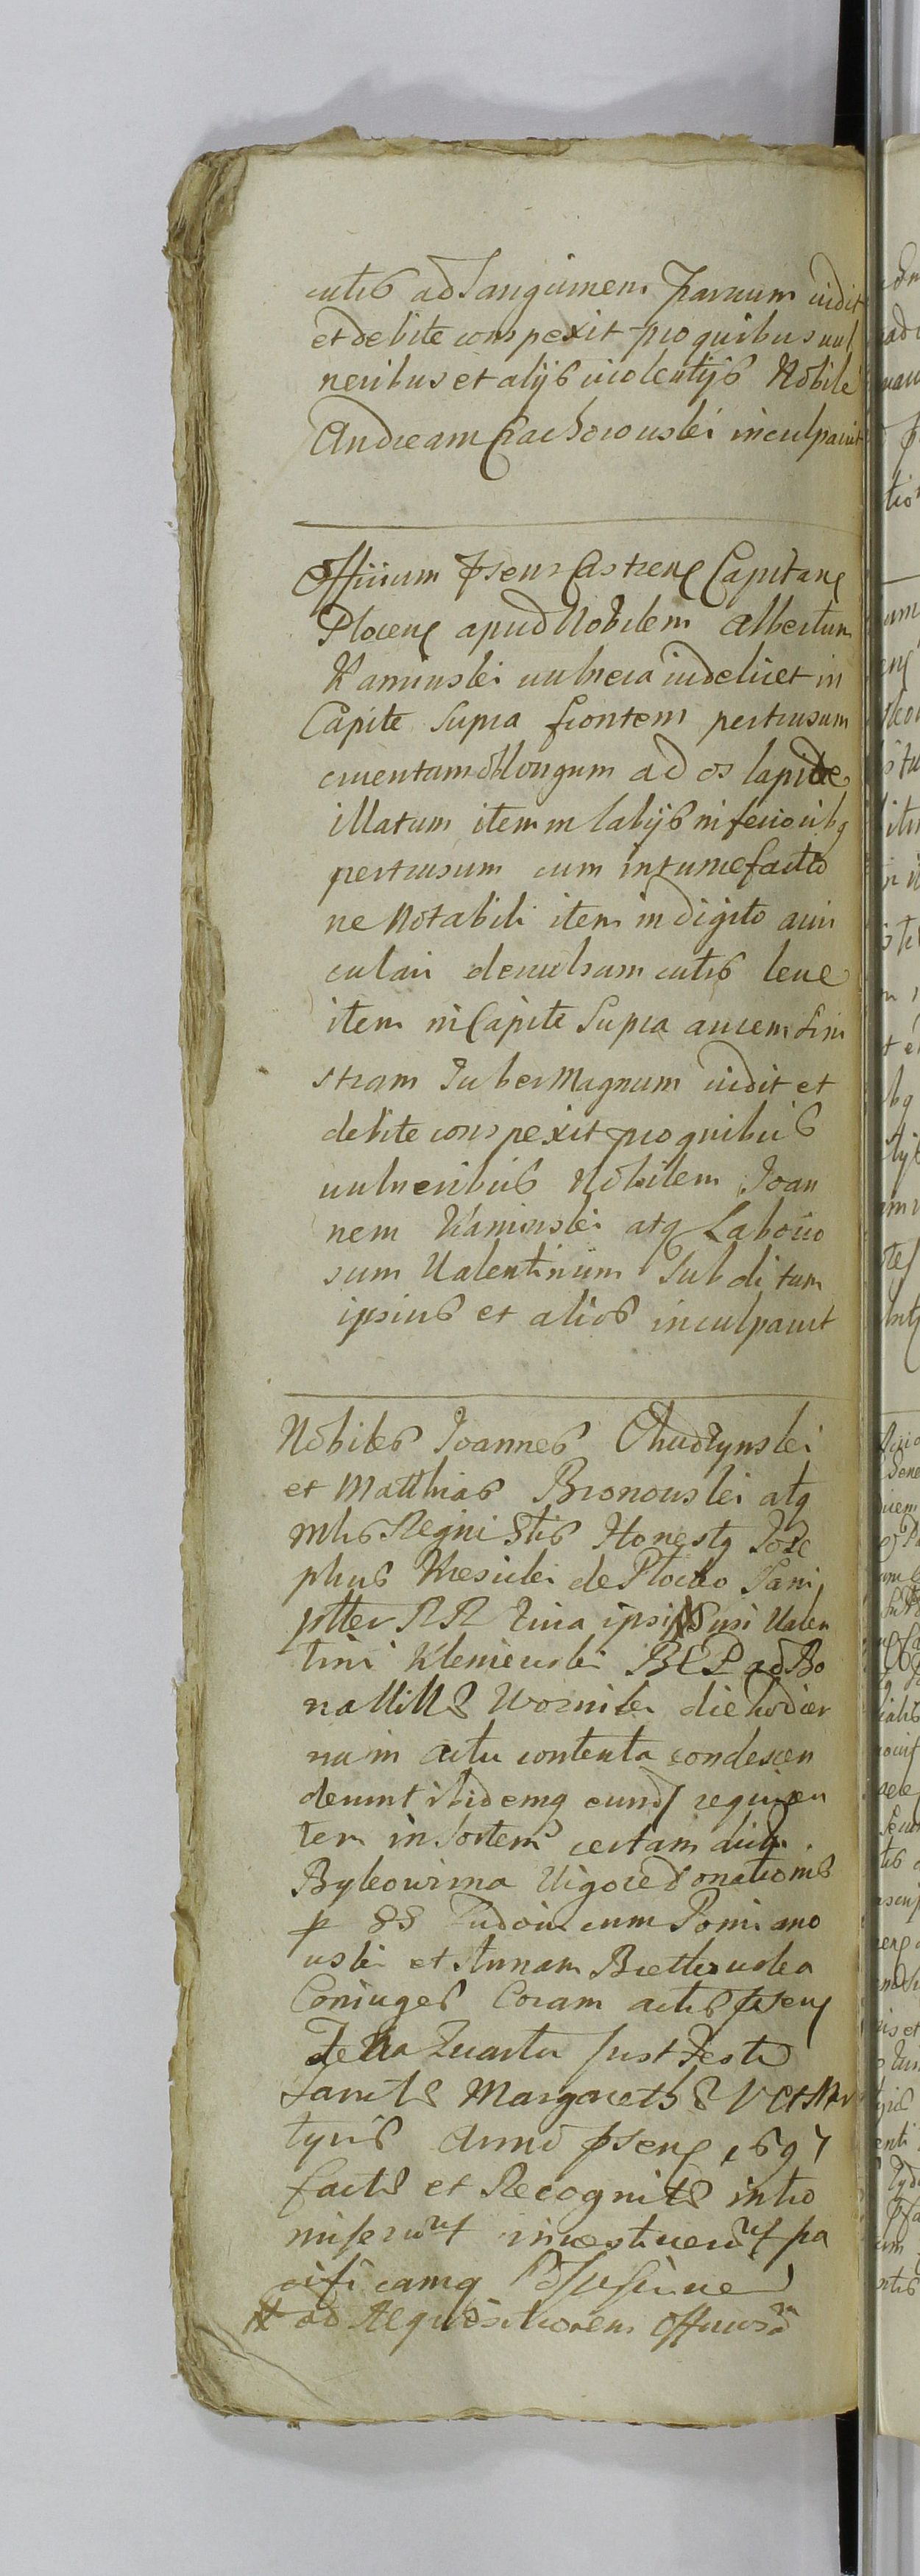 cutis ad Sanguinem Parvum vidit
et debite conspexit pro quibus vul
neribus et alijs violentijs Nobile
Andream inculpavit
Officium Psens Castrens Capitane
Plocens apud Nobilem Albertum
Kaminski vulnera videlicet in
Capite Supra frontem pertusum
cruentum oblongum ad os lapide
illatum item in labijs inferioribq
pertusum cum intumefactio
ne Notabili item in digito auri
culari devulsam cutis leve
item in Capite Supra aurem Sini
stram Tuber Magnum vidit et
debite conspexit pro quibus
vulneribus Nobilem Joan
nem Kaminski atq Laborio
sum Valentinum Subditum
ipsius et alios inculpavit
Nobiles Joannes Chudzynski
et Matthias Bronowski atq
mlis Regni Gtis Honestq Jose
phus de Plocko
ptter RR ipsius Valen
tini Klemewski ad Bo
na die hodier
na in actu contenta condescen
derunt ibidemq eund requiren
tem in Sortem certam dictam
Bylcowizna Vigore donationis
p Ludovicum Pomiano
wski et Annam
Coniuges Coram actis psens
Feria Quarta post Festu
Sanctae Margarethae V et Mar
tyris Anno psens 1697
factae et Recognitae intro
miserunt investiverunt pa
cificamq
ad Aequisitionem Officiosa